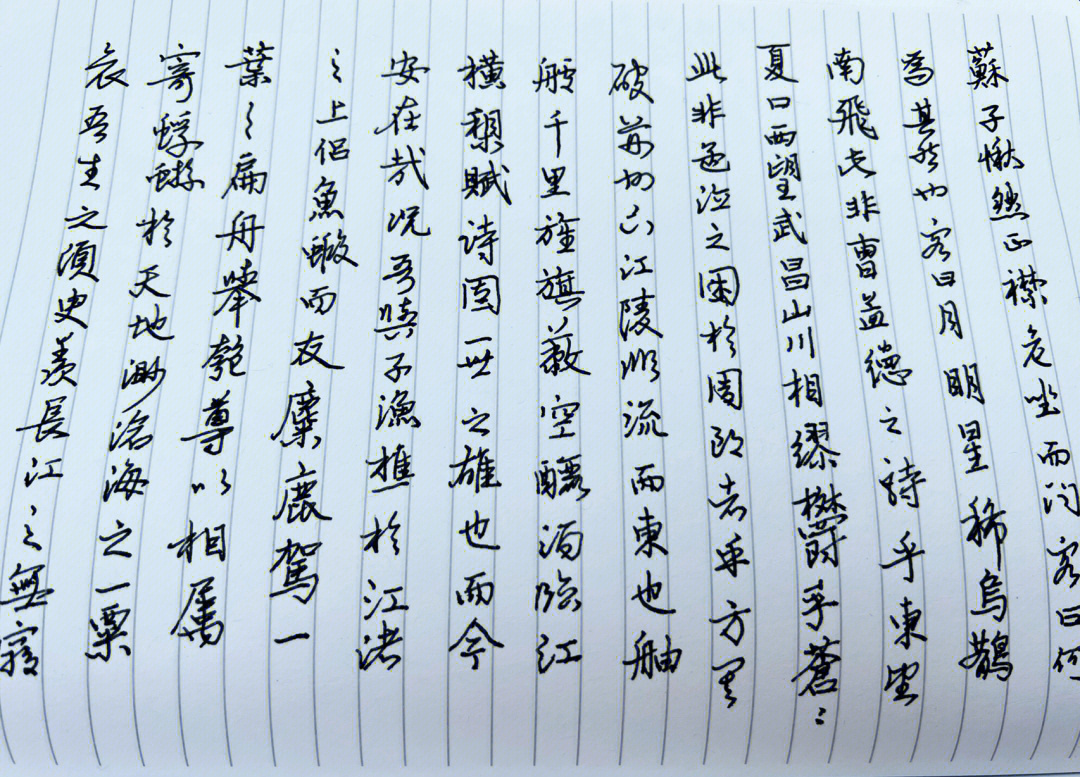 蘇子愀然正襟危坐而问客曰何
為其然也客曰月明星稀烏鵲
南飛此非曹孟德之詩乎東望
夏口西望武昌山川相缪欝乎蒼〻
此非孟德之困於周郎者乎方其
破荊州下江陵順流而東也舳
舻千里旌旗蔽空釃酒臨江
横槊賦诗固一世之雄也而今
安在哉况吾與子漁樵於江渚
之上侣魚蝦而友麋鹿駕一
葉之扁舟舉匏尊以相屬
寄蜉蝣於天地渺滄海之一粟
哀吾生之須臾羨長江之無窮